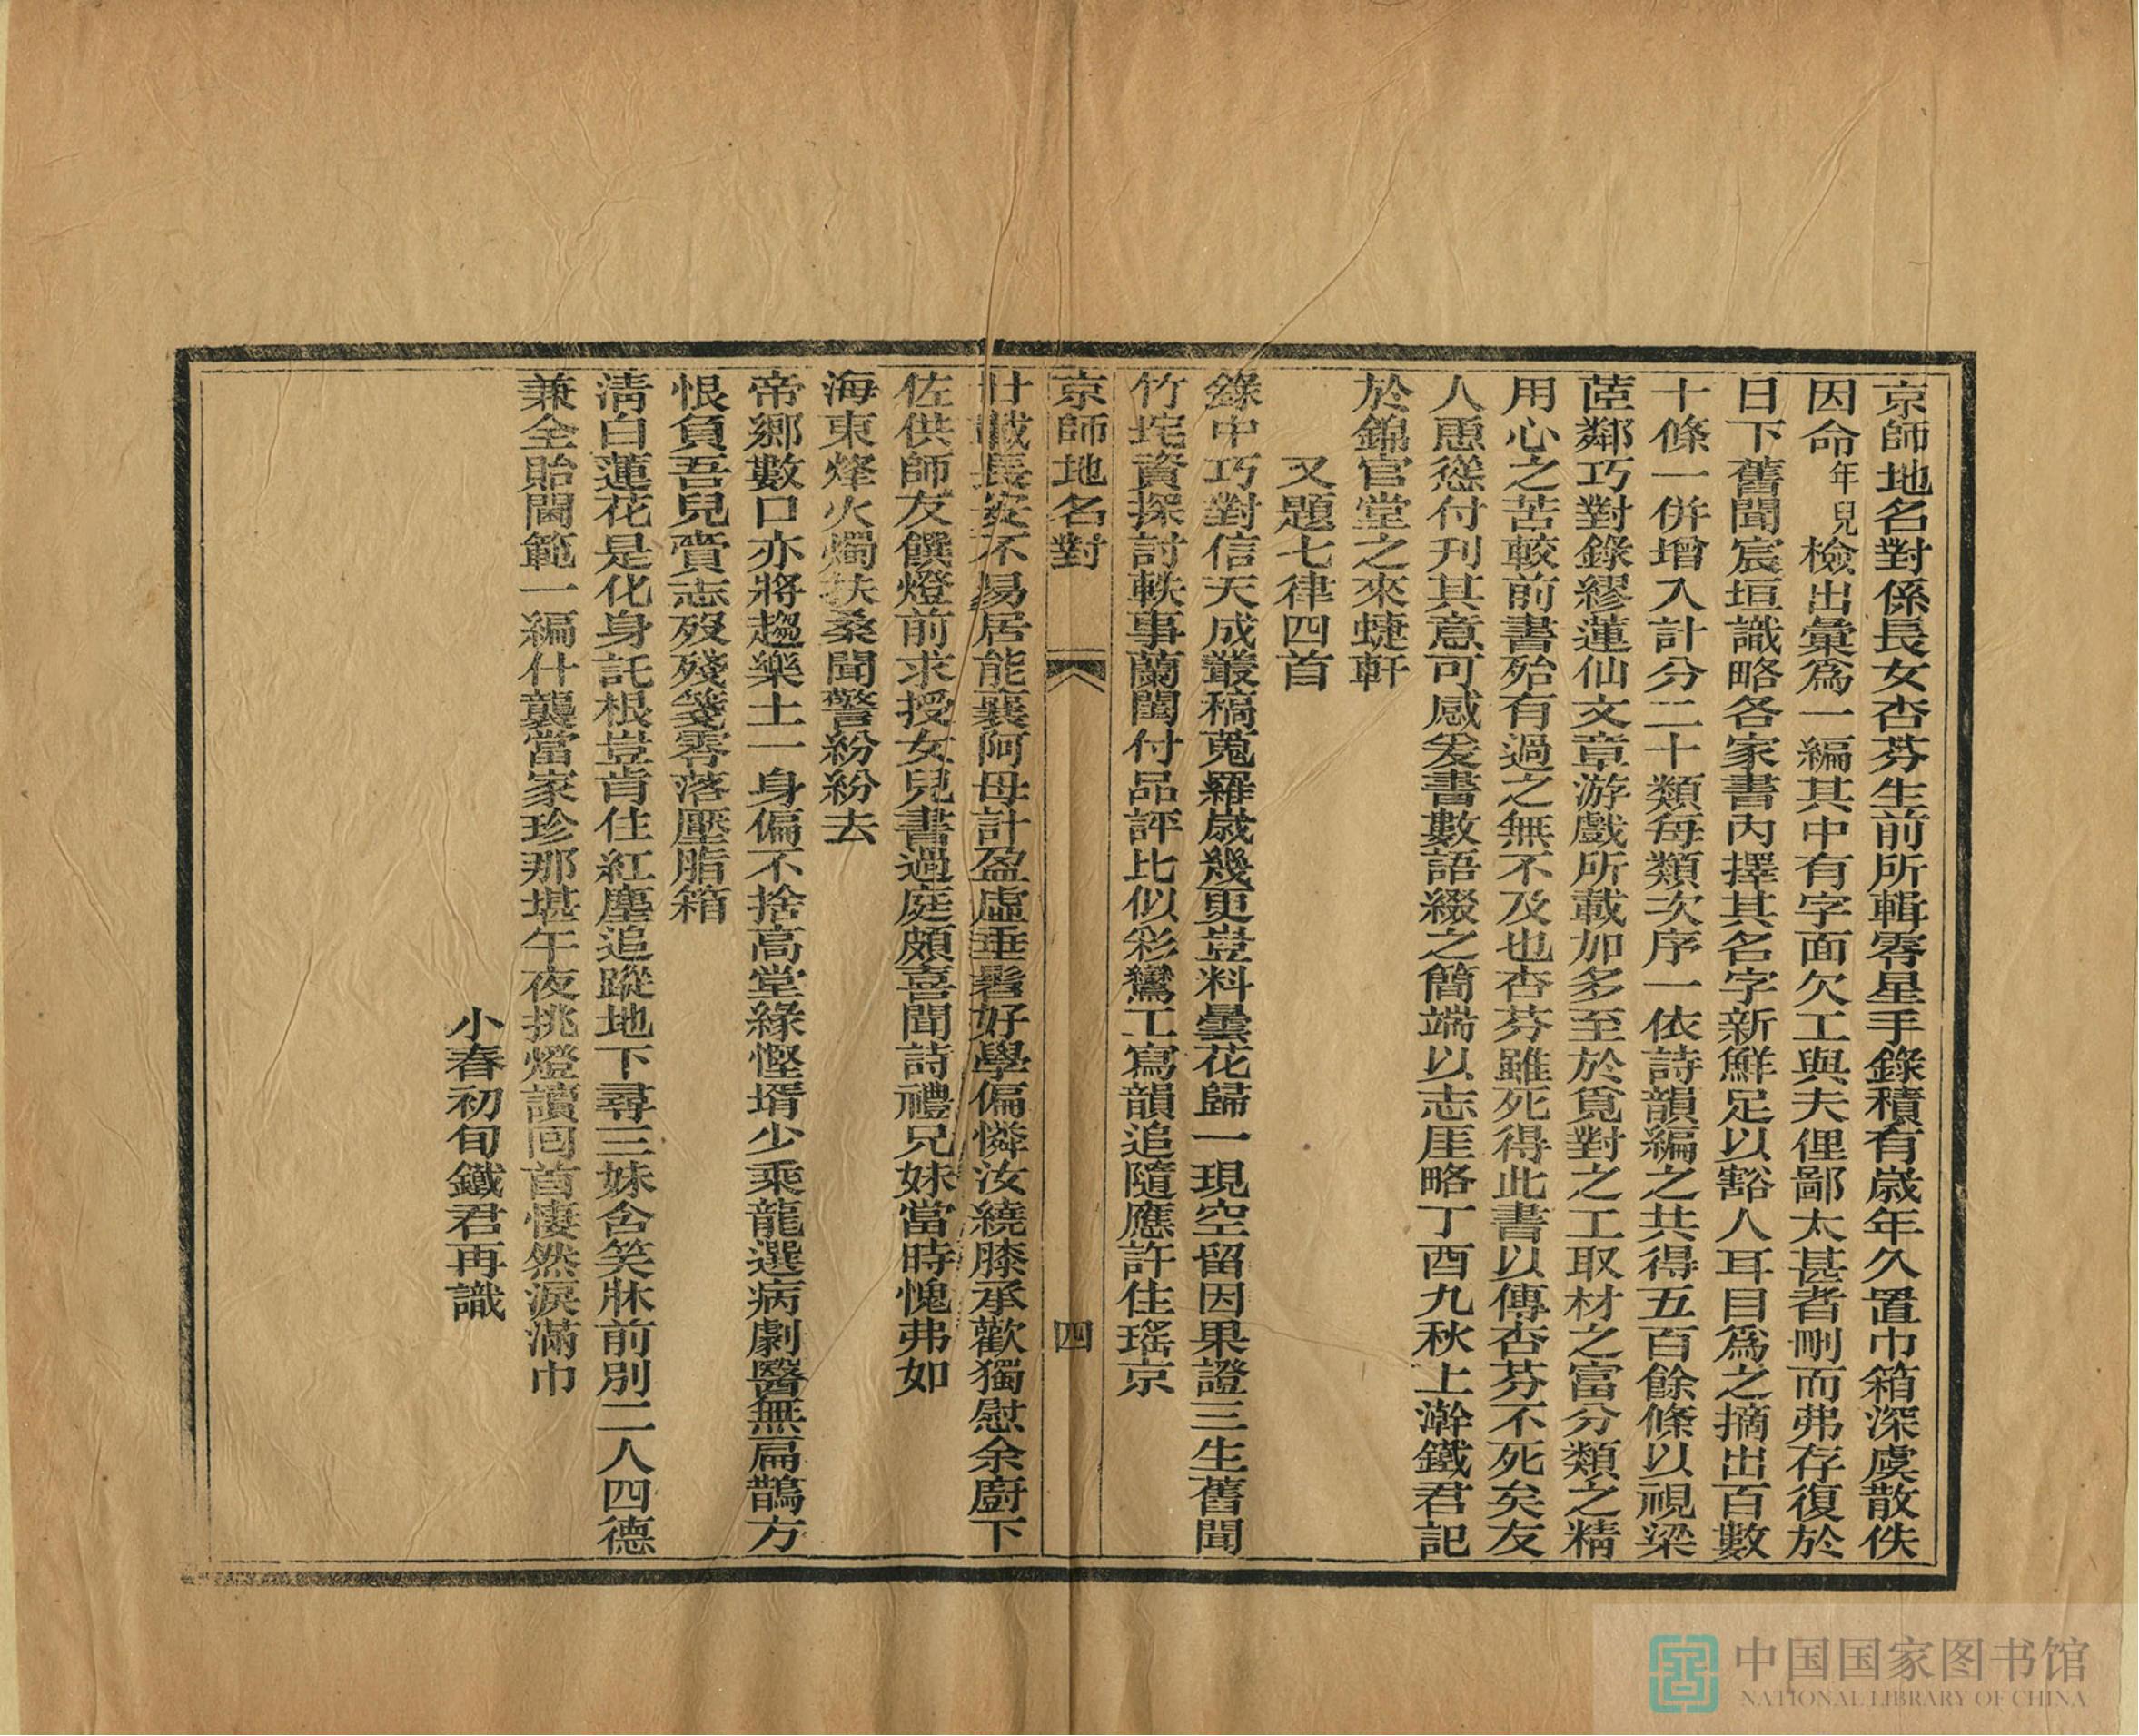 京師地名對係長女杏芬生前所輯零星手錄積有歲年久置巾箱深虞散佚
因命年兒檢出彙為一編其中有字面欠工與夫俚鄙太甚者刪而弗存復於
日下舊聞宸垣識略各家書內擇其名字新鮮足以豁人耳目為之摘出百數
十條一併增入計分二十類每類次序一依詩韻編之共得五百餘條以視梁
茝鄰巧對錄繆蓮仙文章游戲所載加多至於覓對之工取材之富分類之精
用心之苦較前書殆有過之無不及也杏芬雖死得此書以傳杏芬不死矣友
人慫慂付刊其意可感爰書數語綴之簡端以志厓略丁酉九秋上澣鐵君記
於錦官堂之來蜨軒
又題七律四首
錄中巧對信天成叢稿蒐羅歲幾更豈料曇花歸一現空留因果證三生舊聞
竹垞資探討軼事蘭閨付品評比似彩鸞工寫韻追隨應許住瑤京
京師地名對
四
廿載長安不易居能襄阿母計盈虛垂髫好學偏憐汝繞膝承歡獨慰余廚下
佐供師友饌燈前求授女兒書過庭頗喜聞詩禮兄妹當時愧弗如
海東烽火燭扶桑聞警紛紛去
帝鄉數口亦將趨樂土一身偏不捨高堂緣慳壻少乘龍選病劇醫無扁鵲方
恨負吾兒賫志歿殘箋零落壓脂箱
清白蓮花是化身託根豈肯住紅塵追蹤地下尋三妹含笑牀前別二人四德
兼全貽閫範一編什襲當家珍那堪午夜挑燈讀回首悽然淚滿巾
小春初旬鐵君再識
中国国家图书馆
NATIONAL LIBRARY OF CHINA